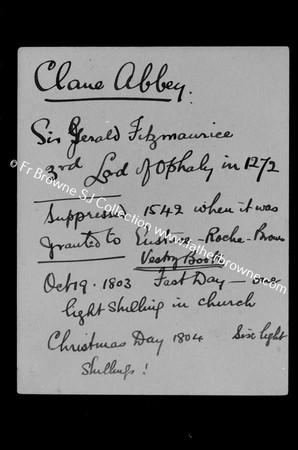 Clane Abbey.
Sir Gerald Fitzmaurice
3rd Lord of Ophaly in 1272
Suppressed 1542 when it was
granted to Eustace - Roche - Brown
Vestry Book
Oct 19. 1803 Fast Day — One
light Shilling in church
Christmas Day 1804 Six light
Shillings!
© Fr Browne SJ Collection www.fatherbrowne.com